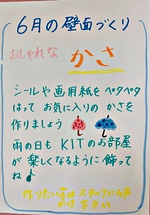 6月の壁面づくり
おしゃれな
かさ
シールや画用紙をペタペタ
はって お気に入りの かさを
作りましょう
雨の日も KITのお部屋
が 楽しくなるように 飾って
ね♪
作りたい方は スタッフにお声
かけ 下さい